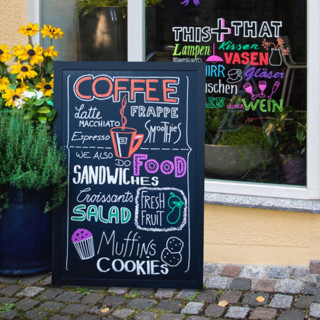 COFFEE
Latte
MACCHIATO
FRAPPE
Espresso
Smoothies
WE ALSO DO FOOD
SANDWICHES
Croissants
SALAD
FRESH
FRUIT
Muffins
COOKIES
THIS+THAT
Lampen
Kissen
VASEN
Gläser
WEIN